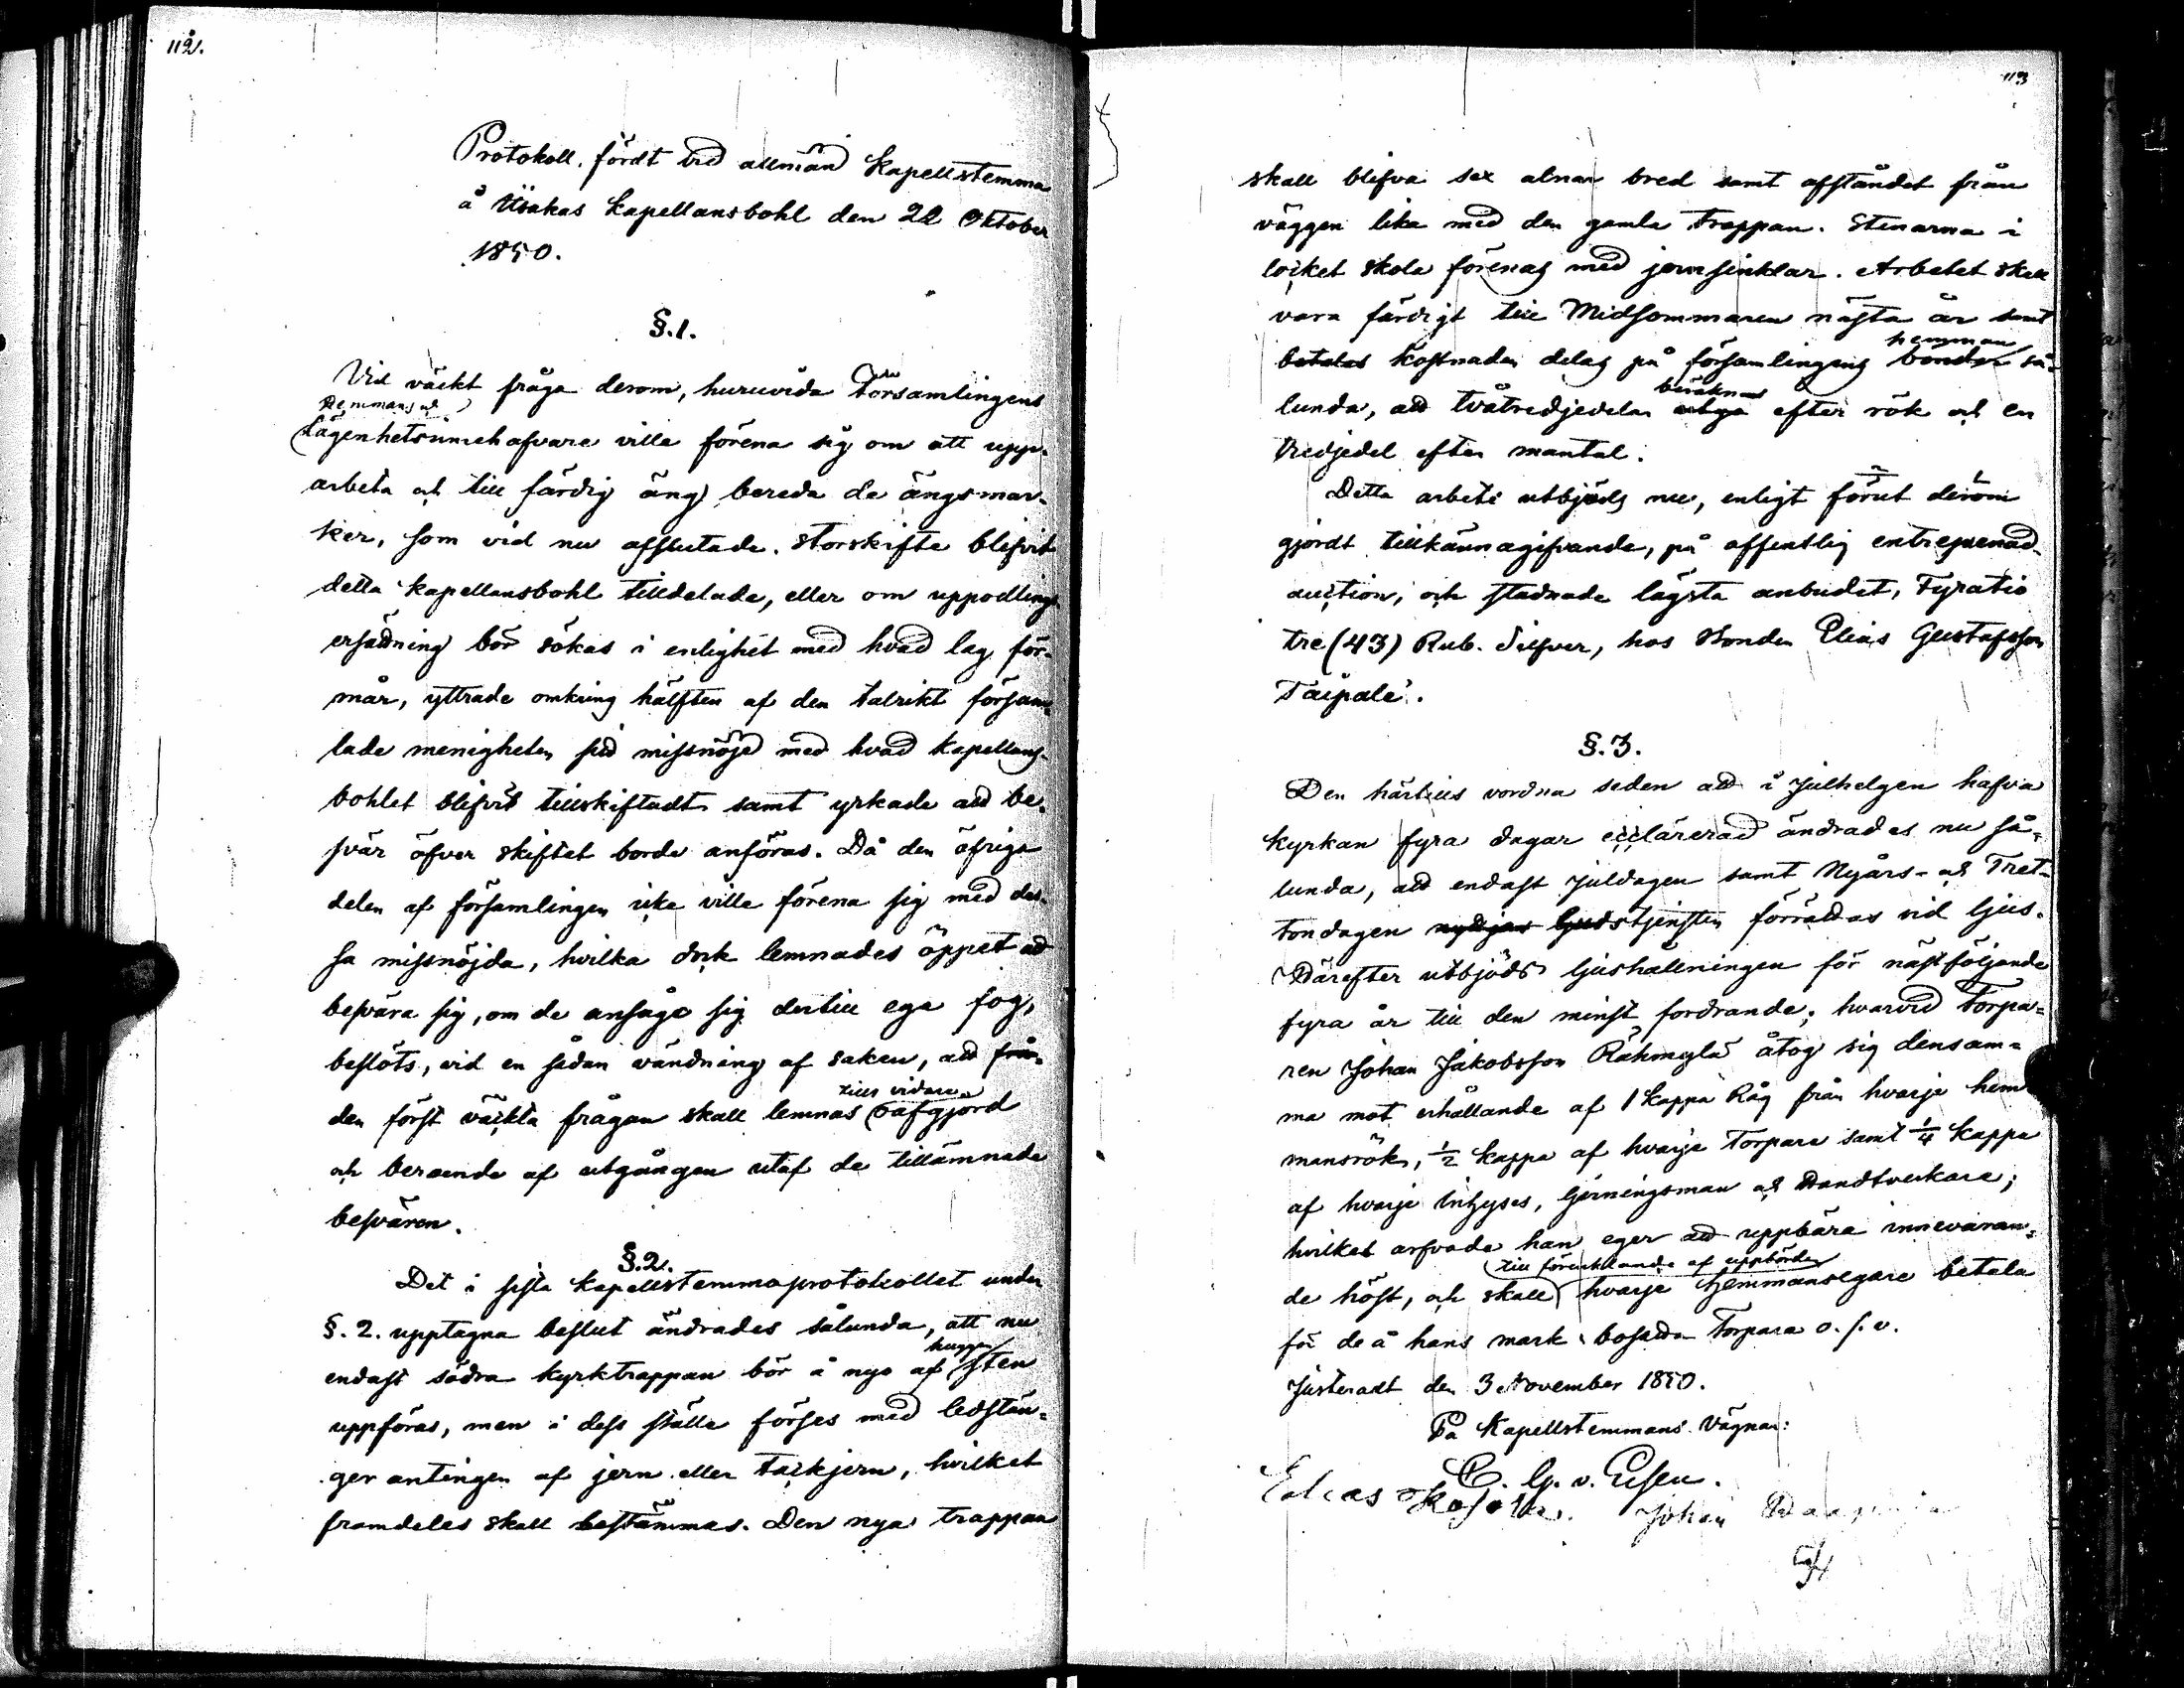 112.
Protokoll, fördt vid allmän Kapellstemma
å Kapellansbohl den 22 Oktober
1850.
§.1.
Vid väckt fråga derom, huruvida Församlingens
Hemmans och
Lägenhetsinnehafvare ville förena sig om att upp-
arbeta och till färdig äng bereda de ängsmar-
ker, som vid nu afslutade Storskifte blifvit
detta Kapellansbohl tilldelade, eller om uppodlings
ersättning bör sökas i enlighet med hvad lag för-
mår, yttrade omkring hälften af den talrikt försam-
lade menigheten sitt missnöje med hvad Kapellans-
bohlet blifvit tillskiftadt samt yrkade att be-
svär öfver skiftet borde anföras. Då den öfriga
delen af församlingen icke ville förena sig med des-
sa missnöjda, hvilka dock lemnades öppet att
besvära sig, om de ansågo sig dertill ega fog,
beslöts, vid en sådan vändning af saken, att frå-
tills vidare
den först väckta frågan skall lemnas oafgjord
och beroende af utgången utaf de tillämnade
besvären.
§.2.
Det i sista Kapellstemmoprotokollet under
§.2. upptagna beslut ändrades sålunda, att nu
huggen
endast södra kyrktrappan bör å nyo af sten
uppföras, men i dess ställe förses med ledstän-
ger antingen af jern eller tackjern, hvilket
framdeles skall bestämmas. Den nya trappan
113
skall blifva sex alnar bred samt afståndet från
väggen lika med den gamla trappan. Stenarna i
locket skola förenas med jernsinklar. Arbetet skall
vara färdigt till Midsommaren nästa år samt
hemman
betalas kostnaden delas på församlingens bönder så-
beräknas
lunda, att tvåtredjedelar utgå efter rök och en
tredjedel efter mantal.
Detta arbete utbjöds nu, enligt förut derom
gjordt tillkännagifvande, på offentlig entreprenad-
auction, och stadnade lägsta anbudet, Fyratio
tre (43) Rub. Silfver, hos Bonden Elias Gustafsson
Taipale.
§.3.
Den härtills vordna seden att i Julhelgen hafva
kyrkan fyra dagar ecclärerad ändrades nu så-
lunda, att endast Juldagen samt Nyårs- och Tret-
tondagen Gudstjensten förrättas vid ljus.
Därefter utbjöds ljushållningen för nästföljande
fyra år till den minst fordrande; hvarvid Torpa-
ren Johan Jakobsson Rähmylä åtog sig densam-
ma mot erhållande af 1 Kappa Råg från hvarje hem-
mansrök, ½ Kappa af hvarje Torpare samt ¼ Kappe
af hvarje Inhyses, Gerningsman och Handtverkare;
hvilket arfvode han eger att uppbära innevaran-
till förenklande af uppbörden
de höst, och skall hvarje Hemmansegare betala
för de å hans mark bosatta Torpare o.s.v.
Justeradt den 3 November 1850.
På Kapellstemmans Vägnar:
C. G. v. Essen.
Johan